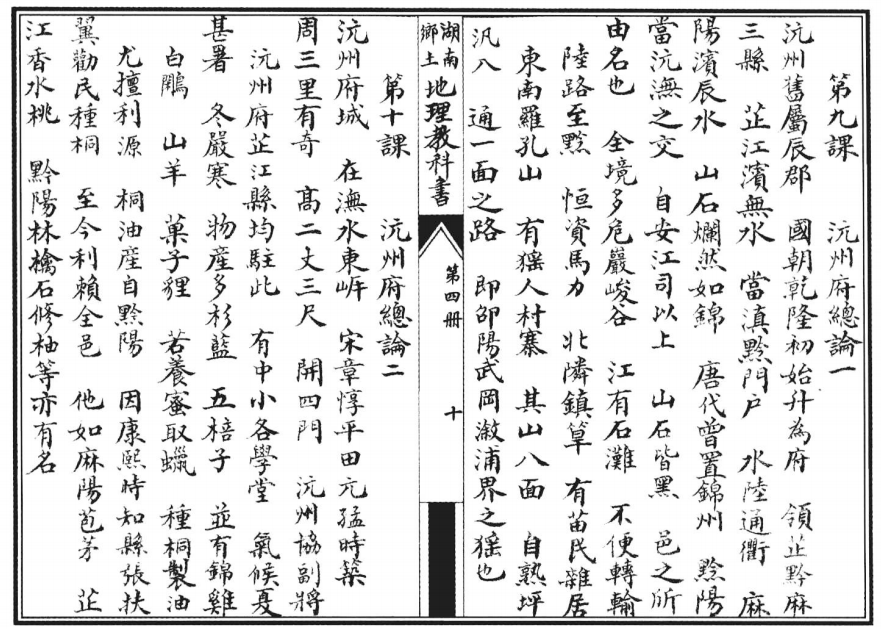 第九課　沅州府總論一
沅州舊屬辰郡　國朝乾隆初始升為府　領芷黔麻
三縣　芷江濱無水　當滇黔門户　水陸通衢　麻
陽濱辰水　山石爛然如錦　唐代曾置錦州　黔陽
當沅潕之交　自安江司以上　山石皆黑　邑之所
由名也　全境多危巖峻谷　江有石灘　不便轉輸
陸路至黔　恒資馬力　北隣鎮筸　有苗民雜居
東南羅孔山　有猺人村寨　其山八面　自熟坪
汎入　通一面之路　即邵陽武岡漵浦界之猺也
湖南鄉土地理教科書
第四册
十
第十課　沅州府總論二
沅州府城　在潕水東岸　宋章惇平田元猛時築
周三里有奇　高二丈三尺　開四門　沅州協副將
沅州府芷江縣均駐此　有中小各學堂　氣候夏
甚暑　冬嚴寒　物産多杉藍　五棓子　並有錦雞
白鷴　山羊　菓子貍　若養蜜取蠟　種桐製油
尤擅利源　桐油産自黔陽　因康熙時知縣張扶
翼勸民種桐　至今利賴全邑　他如麻陽苞茅　芷
江香水桃　黔陽林檎石修柚等亦有名